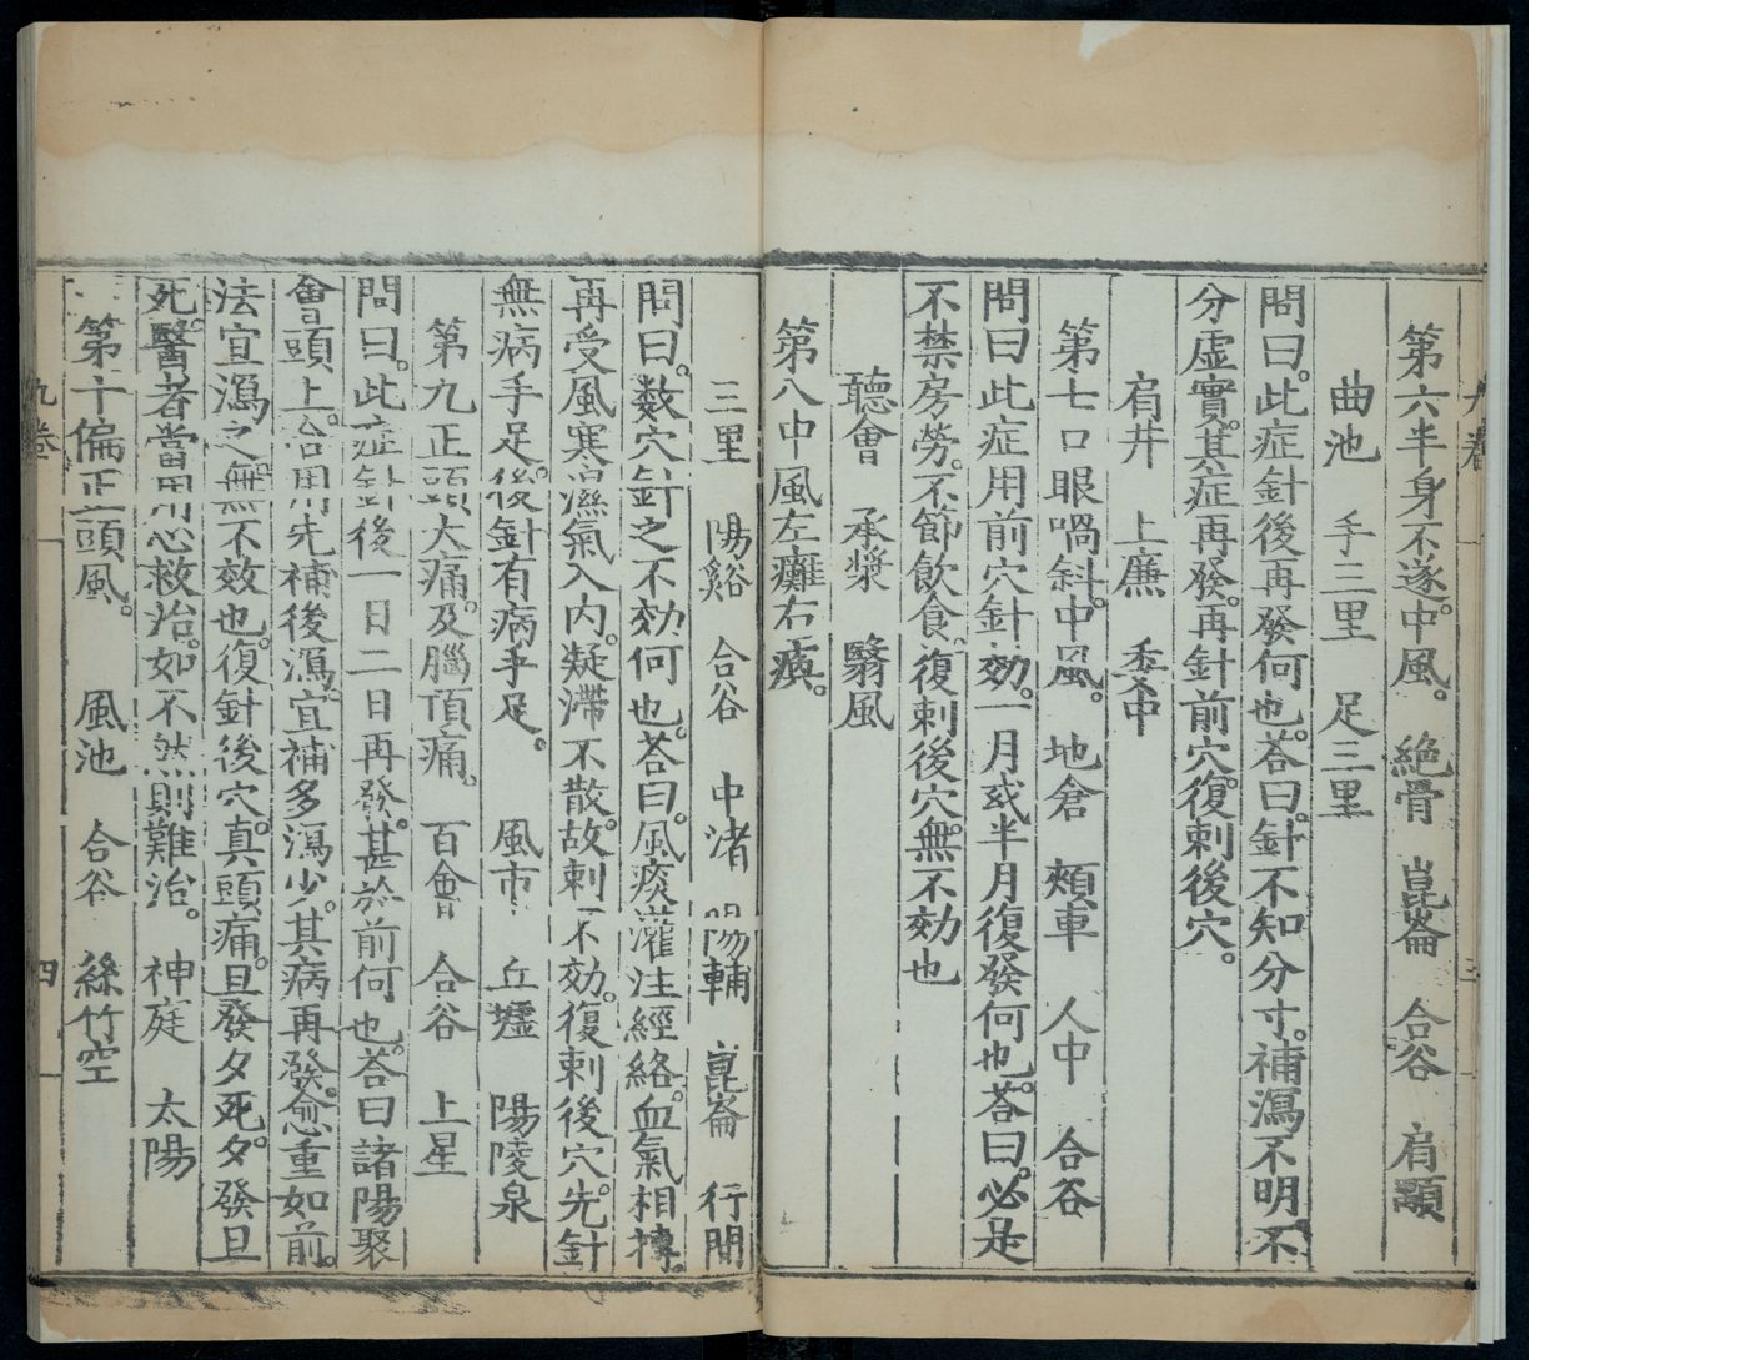 第六半身不遂。中風。 絶骨 崑崙 合谷 肩顒
曲池 手三里 足三里
問曰。此症針後再發何也。荅曰。針不知分寸。補瀉不明不
分虛實。其症再發。再針前穴。復刺後穴。
肩井 上廉 委中
第七口眼喎斜。中風。 地倉 頰車 人中 合谷
問曰此症用前穴針效。一月或半月復發何也。荅曰。必是
不禁房勞。不節飲食。復刺後穴。無不効也
聽會 承漿 翳風
第八中風左癱右瘓。
三里 陽谿 合谷 中渚 陽輔 崑崙 行間
問曰。数穴針之不効何也。荅曰。風痰灌注經絡。血氣相搏。
再受風寒濕氣入内。凝滯不散。故刺不効。復刺後穴。先針
無病手足。後針有病手足。 風市 丘墟 陽陵泉
第九正頭大痛。及腦頂痛。 百會 合谷 上星
問曰。此症針後一日二日再發。甚於前何也。荅曰諸陽聚
會頭上。合用先補後瀉。宜補多瀉少。其病再發。愈重如前。
法宜瀉之。無不效也。復針後穴。真頭痛。旦發夕死。夕發旦
死。醫者當用心救治。如不然則難治。 神庭 太陽
第十偏正頭風。 風池 合谷 絲竹空
九卷 四